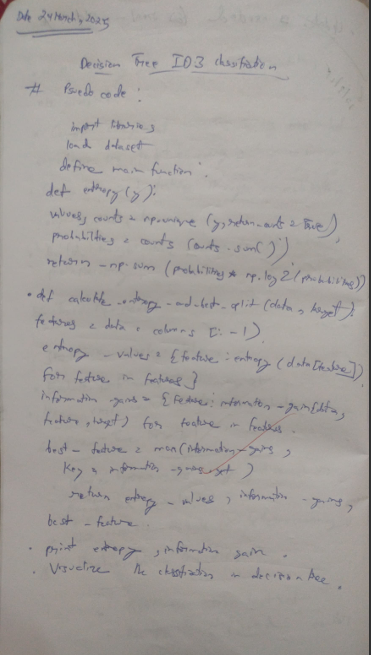 Date 24 March, 2025
Decision Tree ID3 classification
# Psedo code :
import libraries
load dataset
define main function :
def entropy (y):
values, counts = np.unique (y, return_counts = True)
probabilities = counts / counts.sum()
return -np.sum (probabilities * np.log2 (probabilities))
• def calculate_entropy_and_best_split (data, target):
features = data.columns [: -1]
entropy_values = {feature : entropy (data[feature])
for feature in features}
information_gains = {feature: information_gain(data,
feature, target) for feature in features.
best_feature = max(information_gains,
key = information_gains.get )
return entropy_values, information_gains,
best_feature.
• print entropy, information gain.
• Visualize the classification in decision tree.